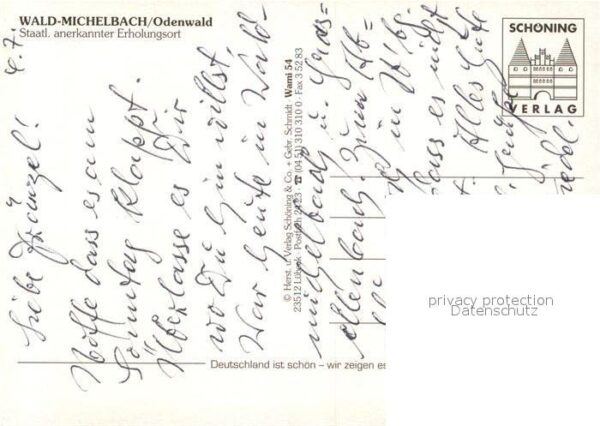 WALD-MICHELBACH/Odenwald
Staatl. anerkannter Erholungsort
SCHÖNING
VERLAG
© Herst. u. Verlag Schöning & Co. + Gebr. Schmidt · Wami 54
23512 Lübeck · Postfach 2423 · ☎ (0451) 310 310 0 · Fax 3 52 83
Deutschland ist schön – wir zeigen es
privacy protection
Datenschutz
Liebe
Hoffe dass es am
Sonntag klappt.
Überlasse es Dir
wo Du hin willst.
War heute in Wald-
michelbach u. Gras-
ellenbach. Zum
dass es nicht
Alles Gute